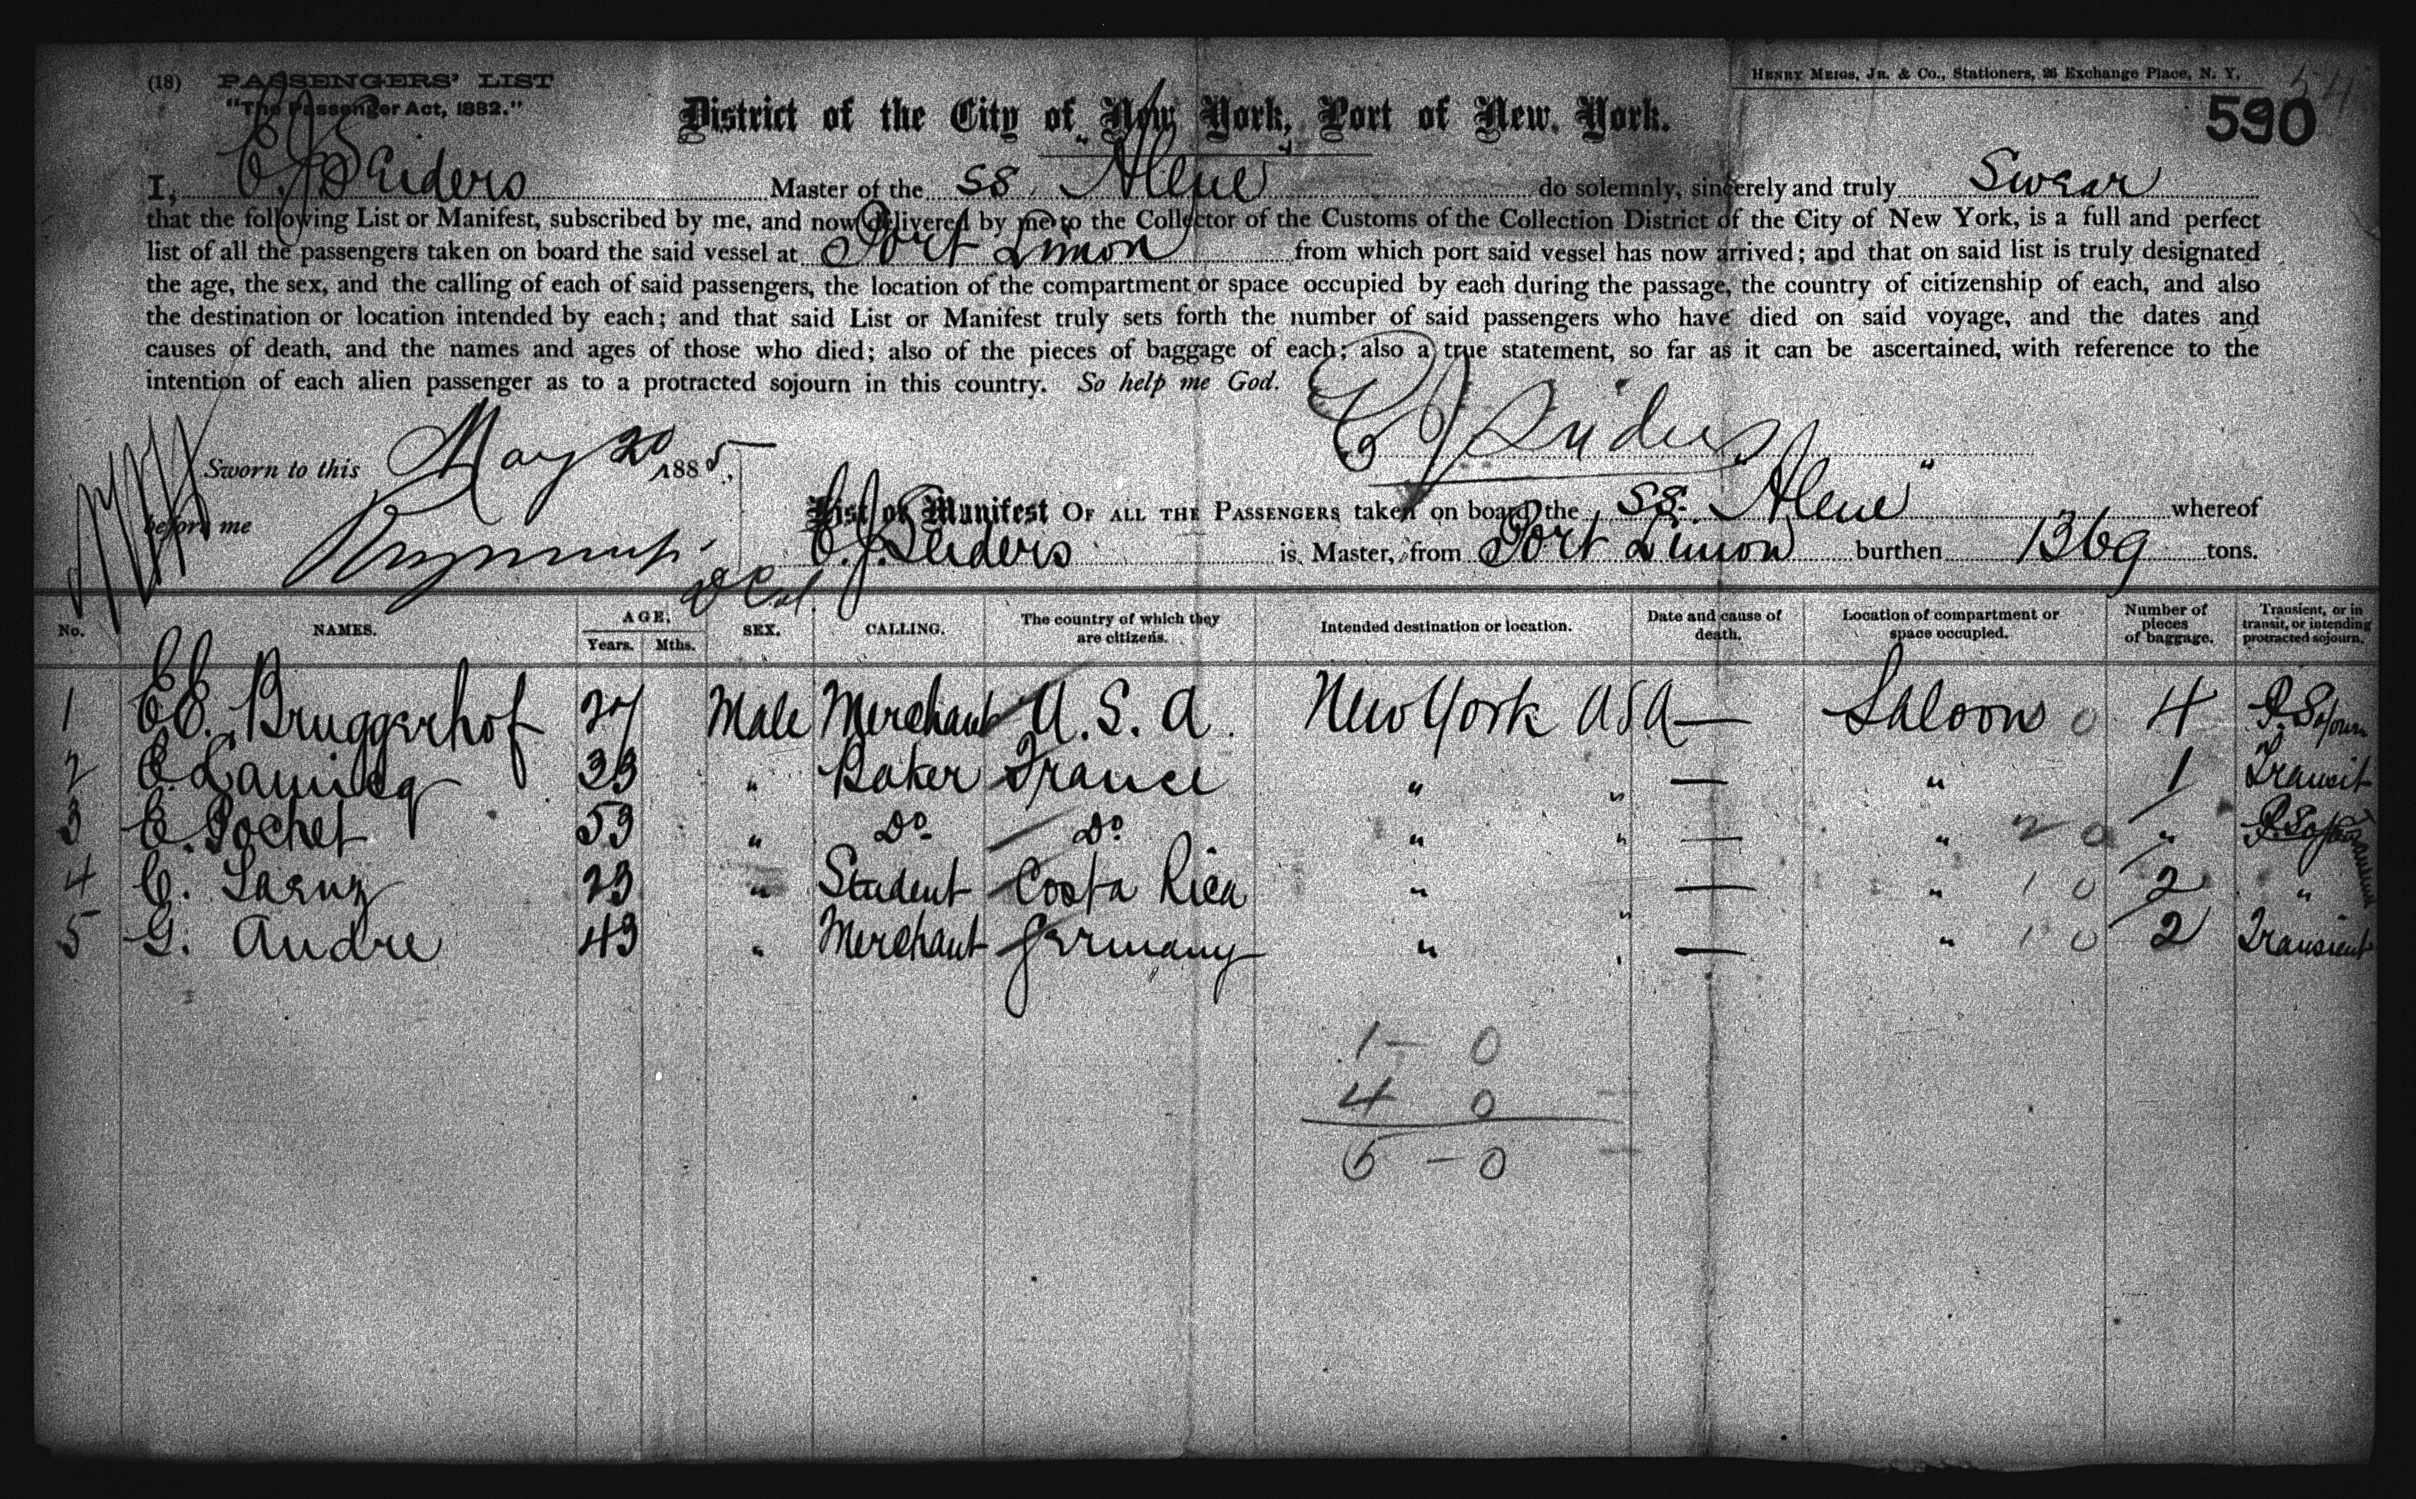 (18) PASSENGERS' LIST
HENRY MEIGS, JR. & CO., Stationers, 26 Exchange Place, N. Y.
"The Passenger Act, 1882."
590
District of the City of New York, Port of New York.
I, C. J. Seiders Master of the SS "Alene" do solemnly, sincerely and truly Swear
that the following List or Manifest, subscribed by me, and now delivered by me to the Collector of the Customs of the Collection District of the City of New York, is a full and perfect
list of all the passengers taken on board the said vessel at Port Limon from which port said vessel has now arrived; and that on said list is truly designated
the age, the sex, and the calling of each of said passengers, the location of the compartment or space occupied by each during the passage, the country of citizenship of each, and also
the destination or location intended by each; and that said List or Manifest truly sets forth the number of said passengers who have died on said voyage, and the dates and
causes of death, and the names and ages of those who died; also of the pieces of baggage of each; also a true statement, so far as it can be ascertained, with reference to the
intention of each alien passenger as to a protracted sojourn in this country. So help me God.
C J Seiders
Sworn to this May 20 1885
before me
List or Manifest OF ALL THE PASSENGERS taken on board the SS. "Alene" whereof
C. J. Seiders is Master, from Port Limon burthen 1369 tons.
No. NAMES. AGE. Years. Mths. SEX. CALLING. The country of which they are citizens. Intended destination or location. Date and cause of death. Location of compartment or space occupied. Number of pieces of baggage. Transient, or in transit, or intending protracted sojourn.
1 Bruggerhof 27 Male Merchant U.S.A. New York USA — Saloon 0 4 P. Sojourn
2 39 " Baker France " " — " 1 Transit
3 E. Pochet 53 " Do Do " " — " 2 0 "
4 23 " Student Costa Rica " — " 1 0 2 "
5 G. Andre 43 " Merchant Germany " — " 1 0 2 Transient
1 – 0
4 0
5 – 0